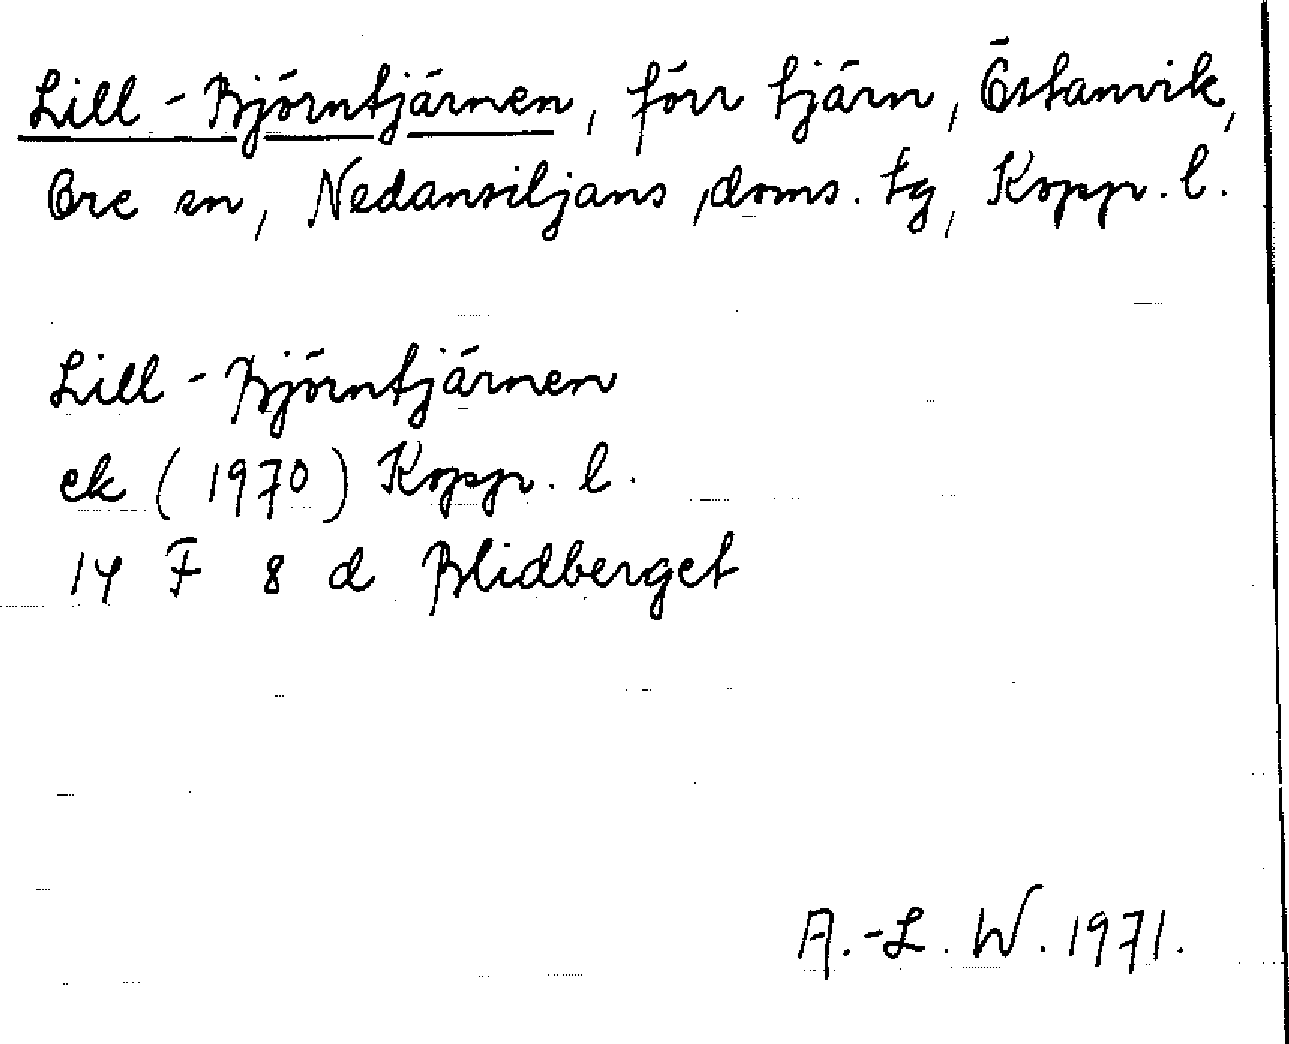 Lill-Björntjärnen, förr tjärn, Östanvik,
Ore sn, Nedansiljans doms. tg, Kopp. l.
Lill-Björntjärnen
ek (1970) Kopp. l.
14 F 8 d Blidberget
A.-L. W. 1971.